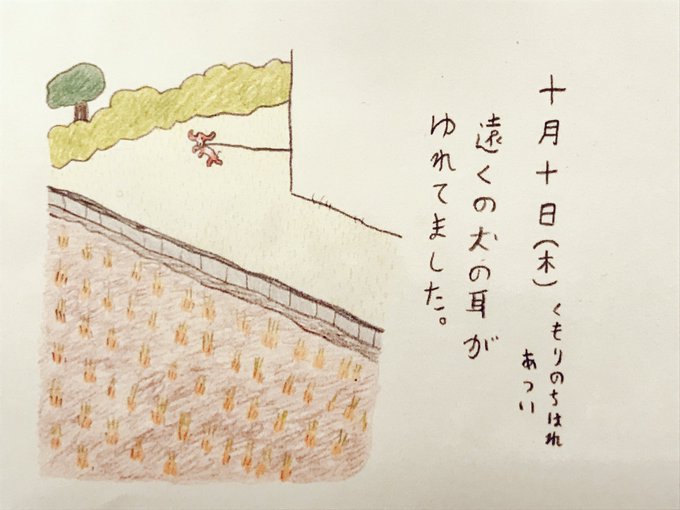 十月十日(木)くもりのちはれ
あつい
遠くの犬の耳が
ゆれてました。